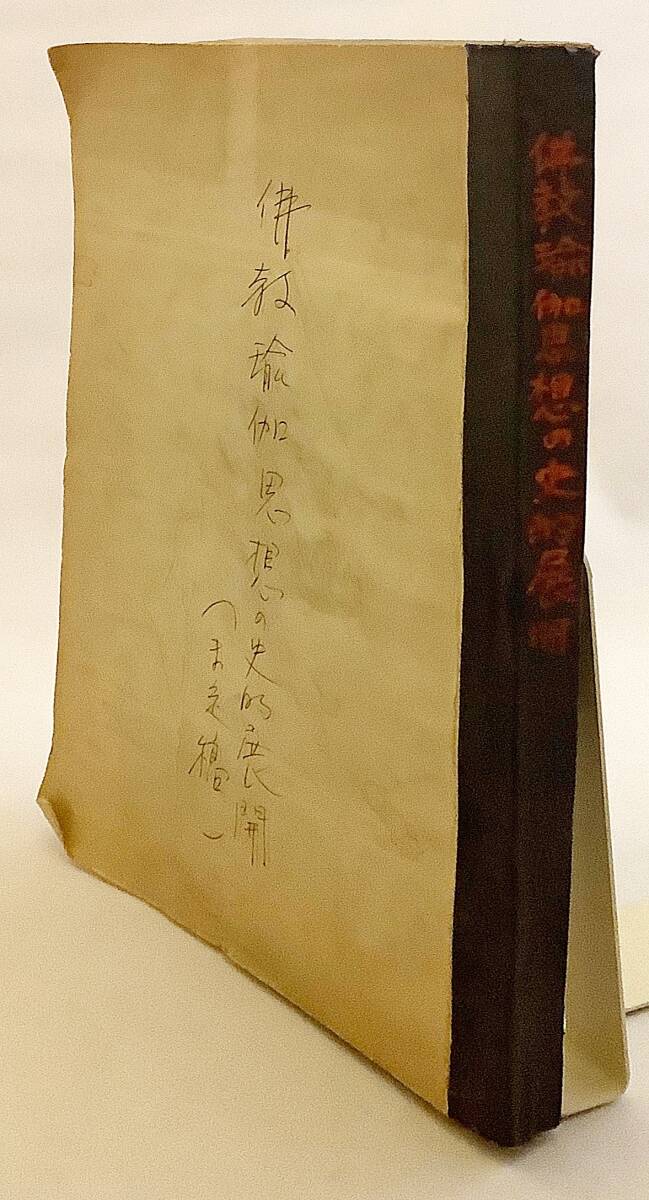 佛教瑜伽思想の史的展開
佛教瑜伽思想の史的展開
（未定稿）